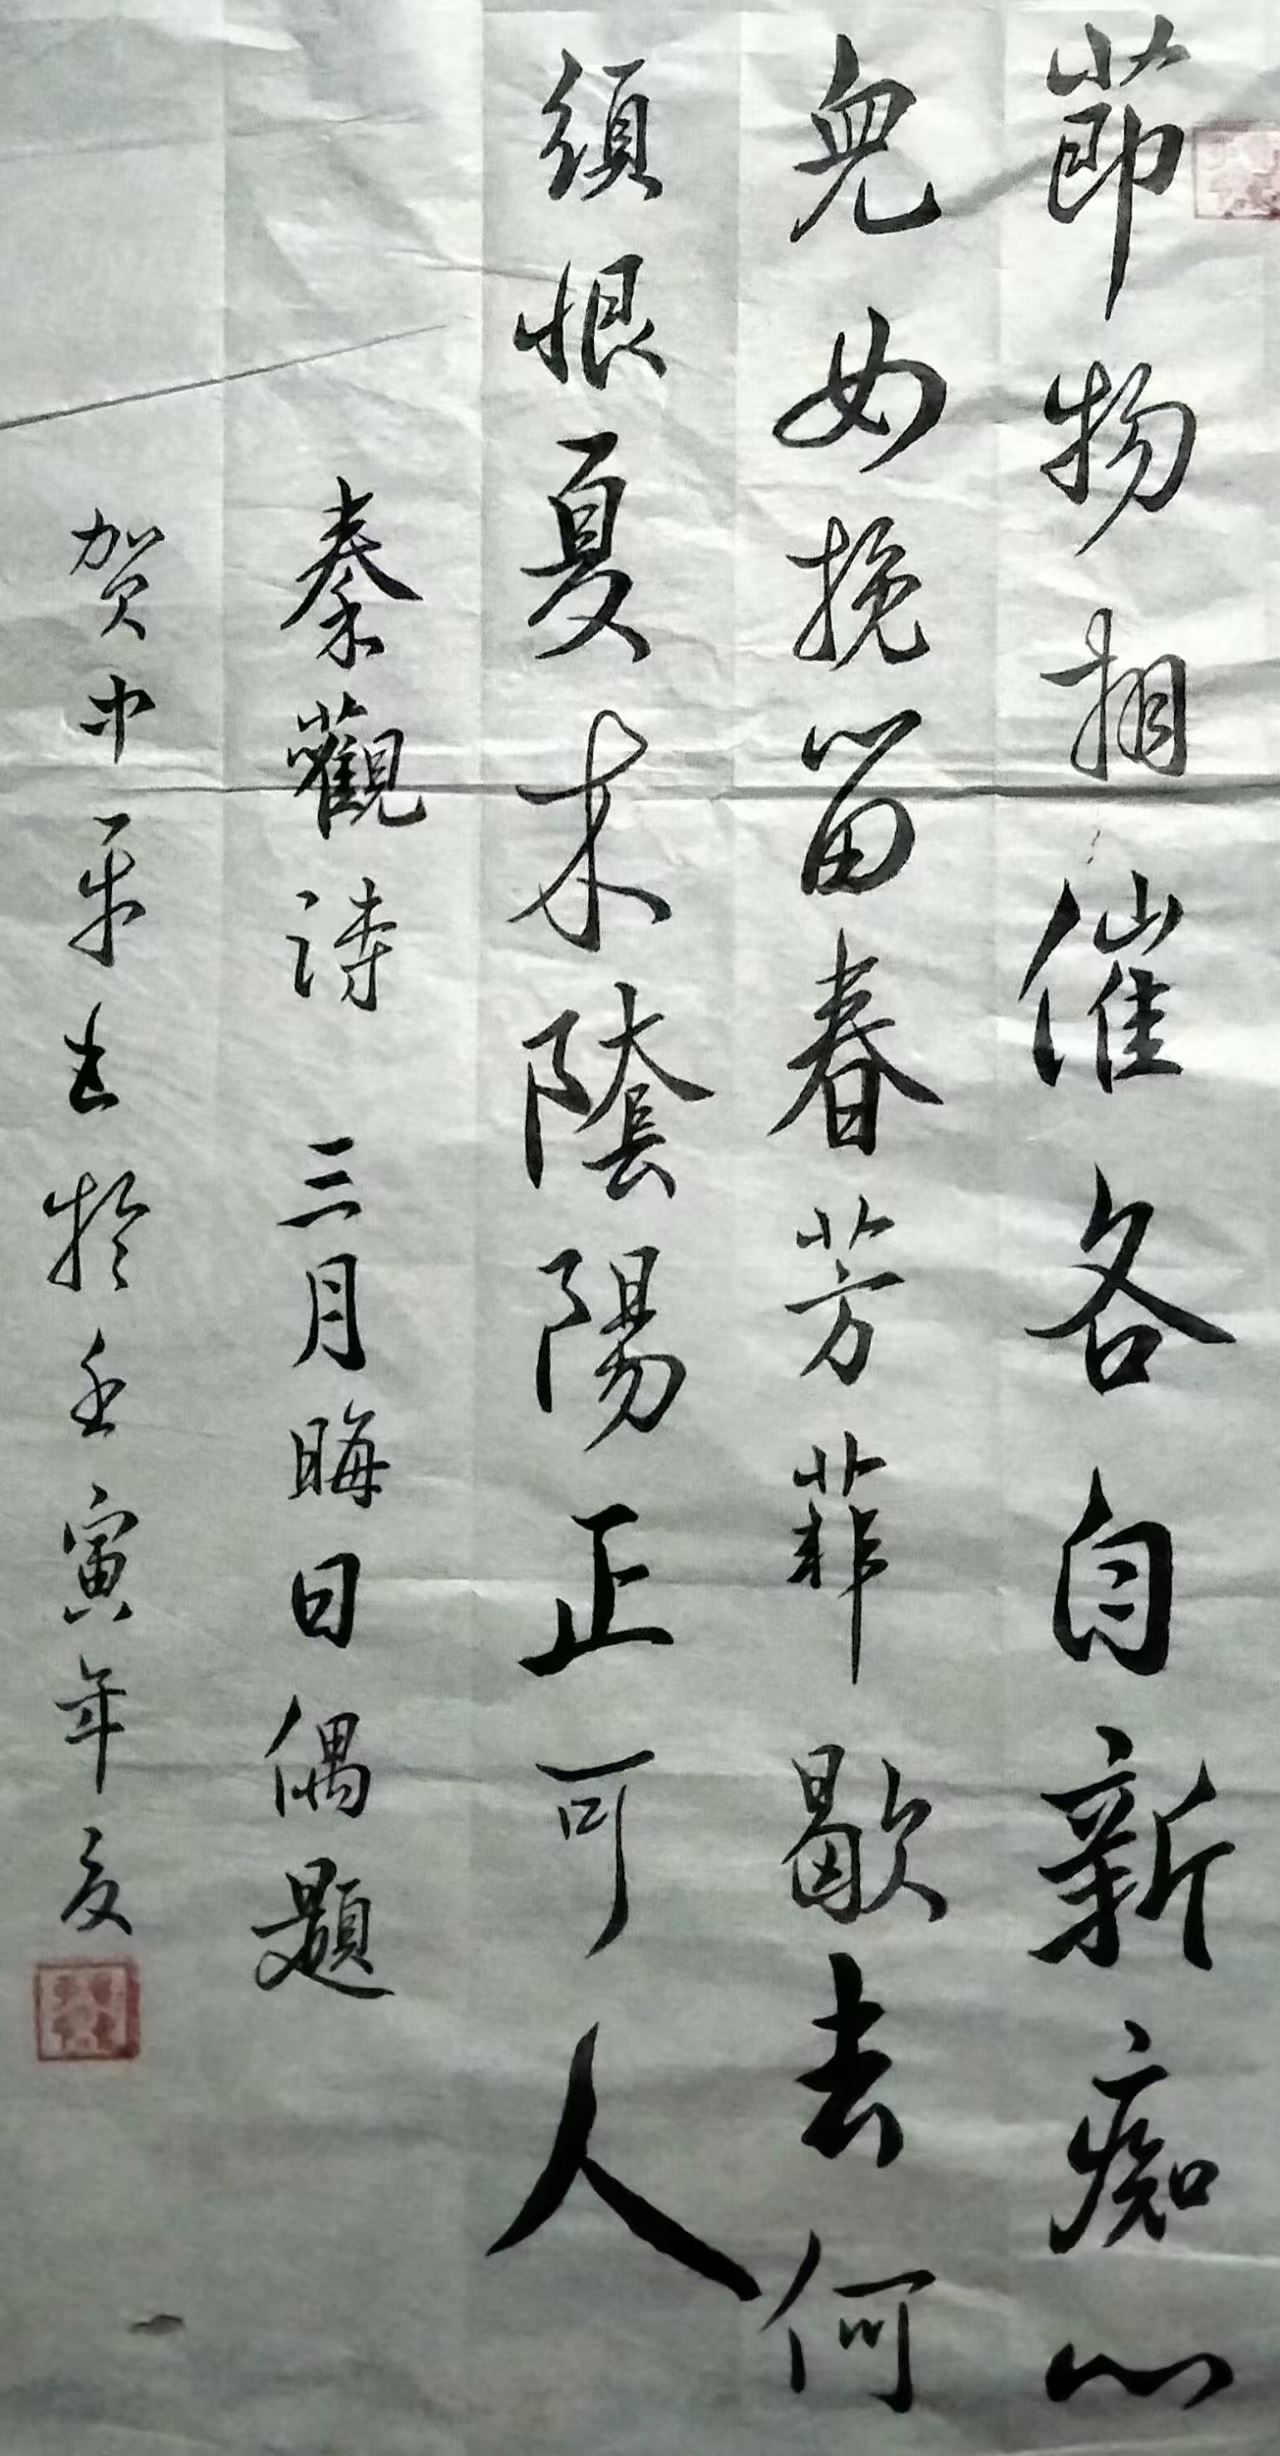 節物相催各自新痴心
兒女挽留春芳菲歇去何
須恨夏木陰陽正可人
秦觀詩 三月晦日偶題
贺中平书於壬寅年夏